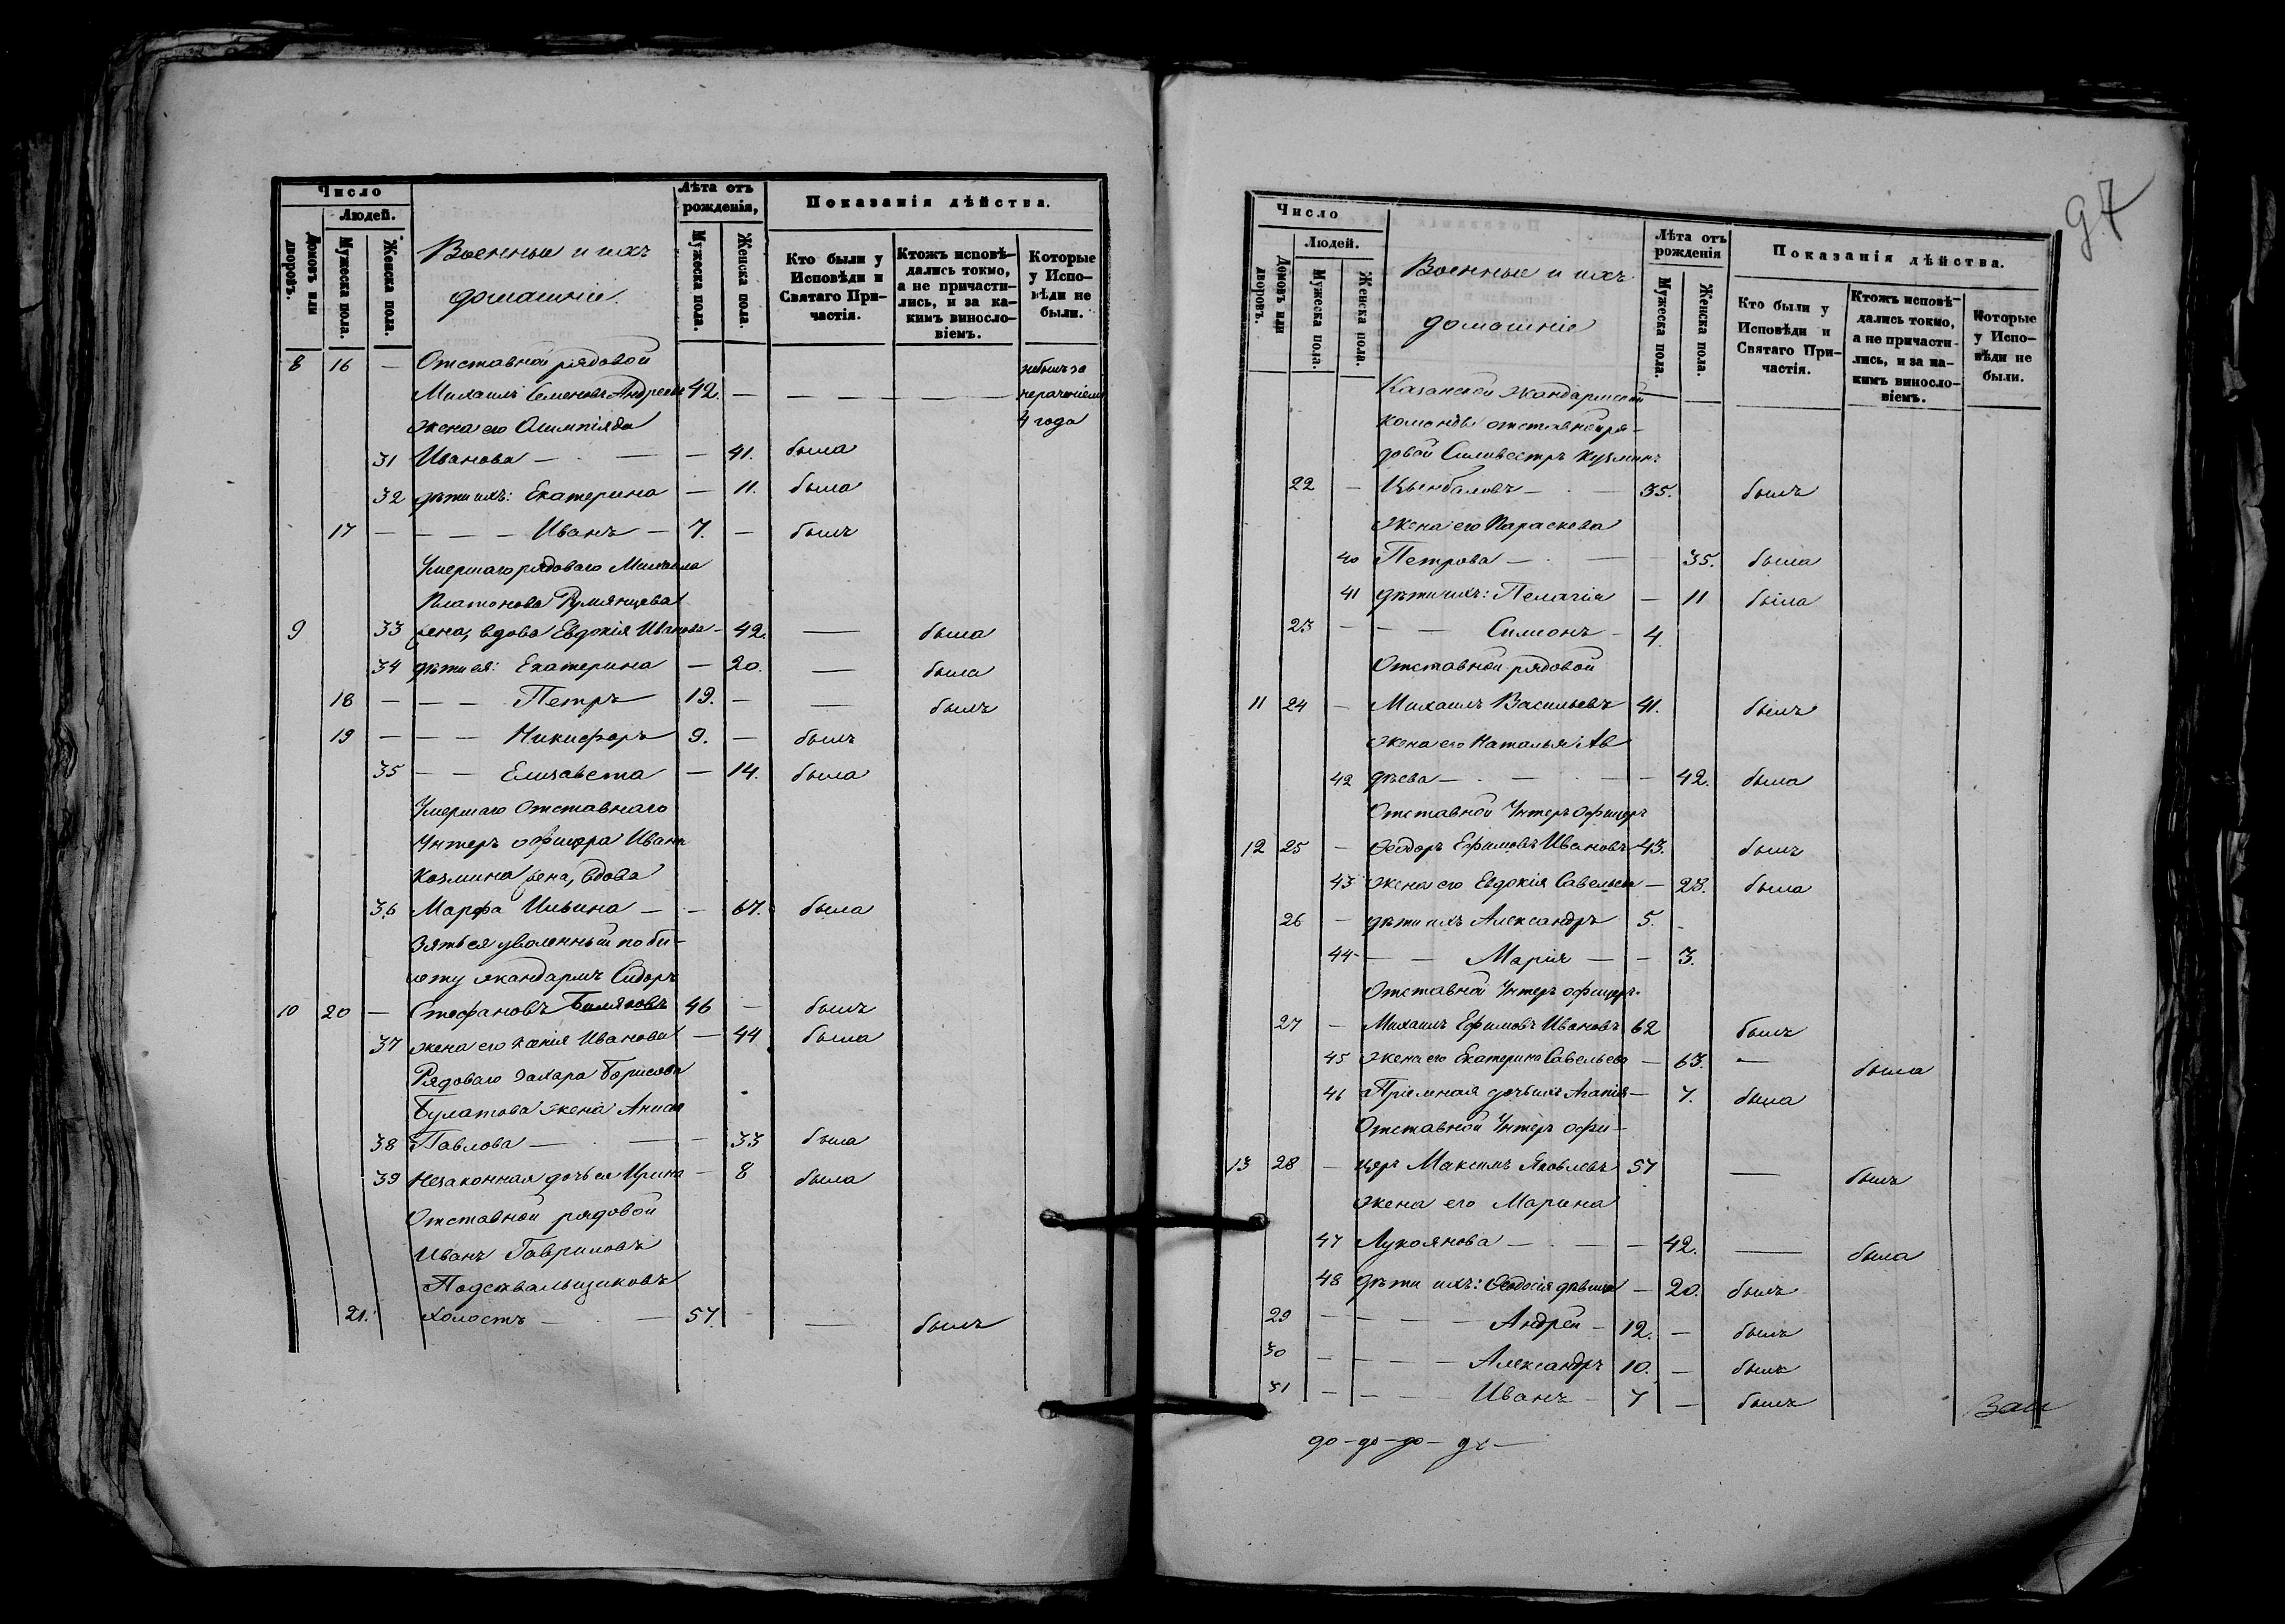 Число
Людей.
Домовъ или дворовъ.
Мужеска пола.
Женска пола.
Военные и ихъ
домашніе.
Лѣта отъ рожденія,
Мужеска пола.
Женска пола.
Показанія дѣйства.
Кто были у Исповѣди и Святаго Причастія.
Ктожъ исповѣдались токмо, а не причастились, и за какимъ винословіемъ.
Которые у Исповѣди не были.
8 16 — Отставной рядовой небылъ за
Михаилъ Семеновъ Андреевъ 42. — — — — — нераченіемъ
жена его Олимпіяда 4 года
31 Иванова — — — 41. была
32 дѣти ихъ: Екатерина — 11. была
17 — — — — Иванъ — 7. — былъ
Умершаго рядоваго Михаила
Платонова Румянцева
9 33 жена, вдова Евдокія Иванова — 42. — была
34 дѣти ея: Екатерина — 20. — была
18 — — — Петръ 19. — — былъ
19 — — — Никифоръ 9. — былъ
35 — — Елизавета — 14. была
Умершаго Отставнаго
Унтеръ офицера Ивана
Козмина жена, вдова
36 Марфа Ильина — — 67. была
Зять ея уволенный по би-
лету жандармъ Сидоръ
10 20 — Стефановъ Биляковъ 46 — былъ
37 жена его Ксенія Иванова — 44 была
Рядоваго Захара Борисова
Булатова жена Анисья
38 Павлова — — — 33 была
39 Незаконная дочь ея Ирина — 8 была
Отставной рядовой
Иванъ Гавриловъ
Подсквальщиковъ
21. Холостъ — — 57. — — былъ
97
Число
Людей.
Домовъ или дворовъ.
Мужеска пола.
Женска пола.
Военные и ихъ
домашніе
Лѣта отъ рожденія
Мужеска пола.
Женска пола.
Показанія дѣйства.
Кто были у Исповѣди и Святаго Причастія.
Ктожъ исповѣдались токмо, а не причастились, и за какимъ винословіемъ.
Которые у Исповѣди не были.
Казанской жандармской
команды отставной ря-
довой Силивестръ Кузминъ
22 — Цынбаловъ — — 35. былъ
жена его Параскева
40 Петрова — — — 35. была
41 дѣти ихъ: Пелагія — 11 была
23 — — — Симонъ — 4.
Отставной рядовой
11 24 — Михаилъ Васильевъ 41. былъ
жена его Наталья Ав
42 дѣева — — — — 42. была
Отставной Унтеръ Офицеръ
12 25 — Ѳеодоръ Ефимовъ Ивановъ 43. былъ
43 жена его Евдокія Савельева — 23. была
26 — дѣти ихъ Александръ 5. -
44 — — Марія — — 3.
Отставной Унтеръ офицеръ
27 — Михаилъ Ефимовъ Ивановъ 62 былъ
45 жена его Екатерина Савельева — 63. — была
46 Пріемная дочь ихъ Агапія — 7. была
Отставной Унтеръ офи-
13 28 — церъ Максимъ Яковлевъ 57 — былъ
жена его Марина
47 Лукоянова — — — 42. — была
48 дѣти ихъ: Ѳеодосія дѣвица — 20. былъ
29 — — — — Андрей — 12. — былъ
30 — — — — Александръ 10. — былъ
31 — — — — Иванъ — 7 — былъ
до — до — до —